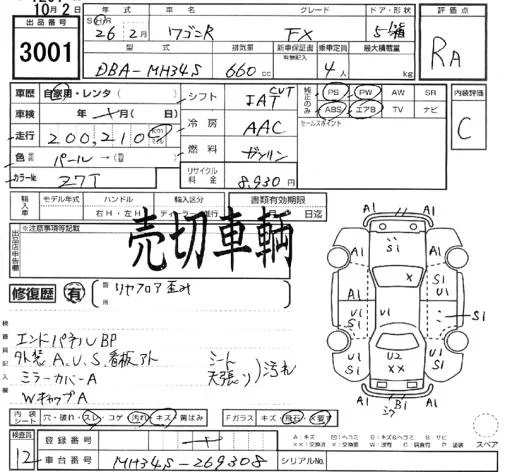 10月2日
出品番号
3001
年式 車名 グレード ドア・形状
S H R 26年 2月 ワゴンR FX 5 箱
型式 排気量 新車保証書 有無記入 乗車定員 最大積載量
DBA-MH34S 660cc 4人 kg
評価点
RA
車歴 自家用・レンタ シフト IAT CUT
車検 年 月 冷房 AAC
走行 200,210 Km 燃料 ガソリン
色 パール→ リサイクル料金 8,930円
カラーNo Z7T
純正のみ PS PW AW SR
ABS エアB TV ナビ
セールスポイント
内装評価
C
輸入車 モデル年式 ハンドル 輸入区分 書類有効期限
右H・左H 月 日迄
売切車輌
出品店申告欄 ※注意事項等記載
修復歴 有 箇所 リヤフロア歪み
検査員記入欄
エンドパネルUBP
外装A.U.S.看板アト シート 天張り )汚れ
ミラーカバーA
WキャップA
A1 A1
S1
A1 A1
S1 X S1
U1 U1 S1
U1 S1 U1 S1
U2 XX
A1 B1 A1
内装シート 穴・破れ・スレ・コゲ・汚れ・キズ・黄ばみ Fガラス キズ・飛石・X要す
検査員 12
登録番号
車台番号 MH34S-269308 シリアルNo.
スペア